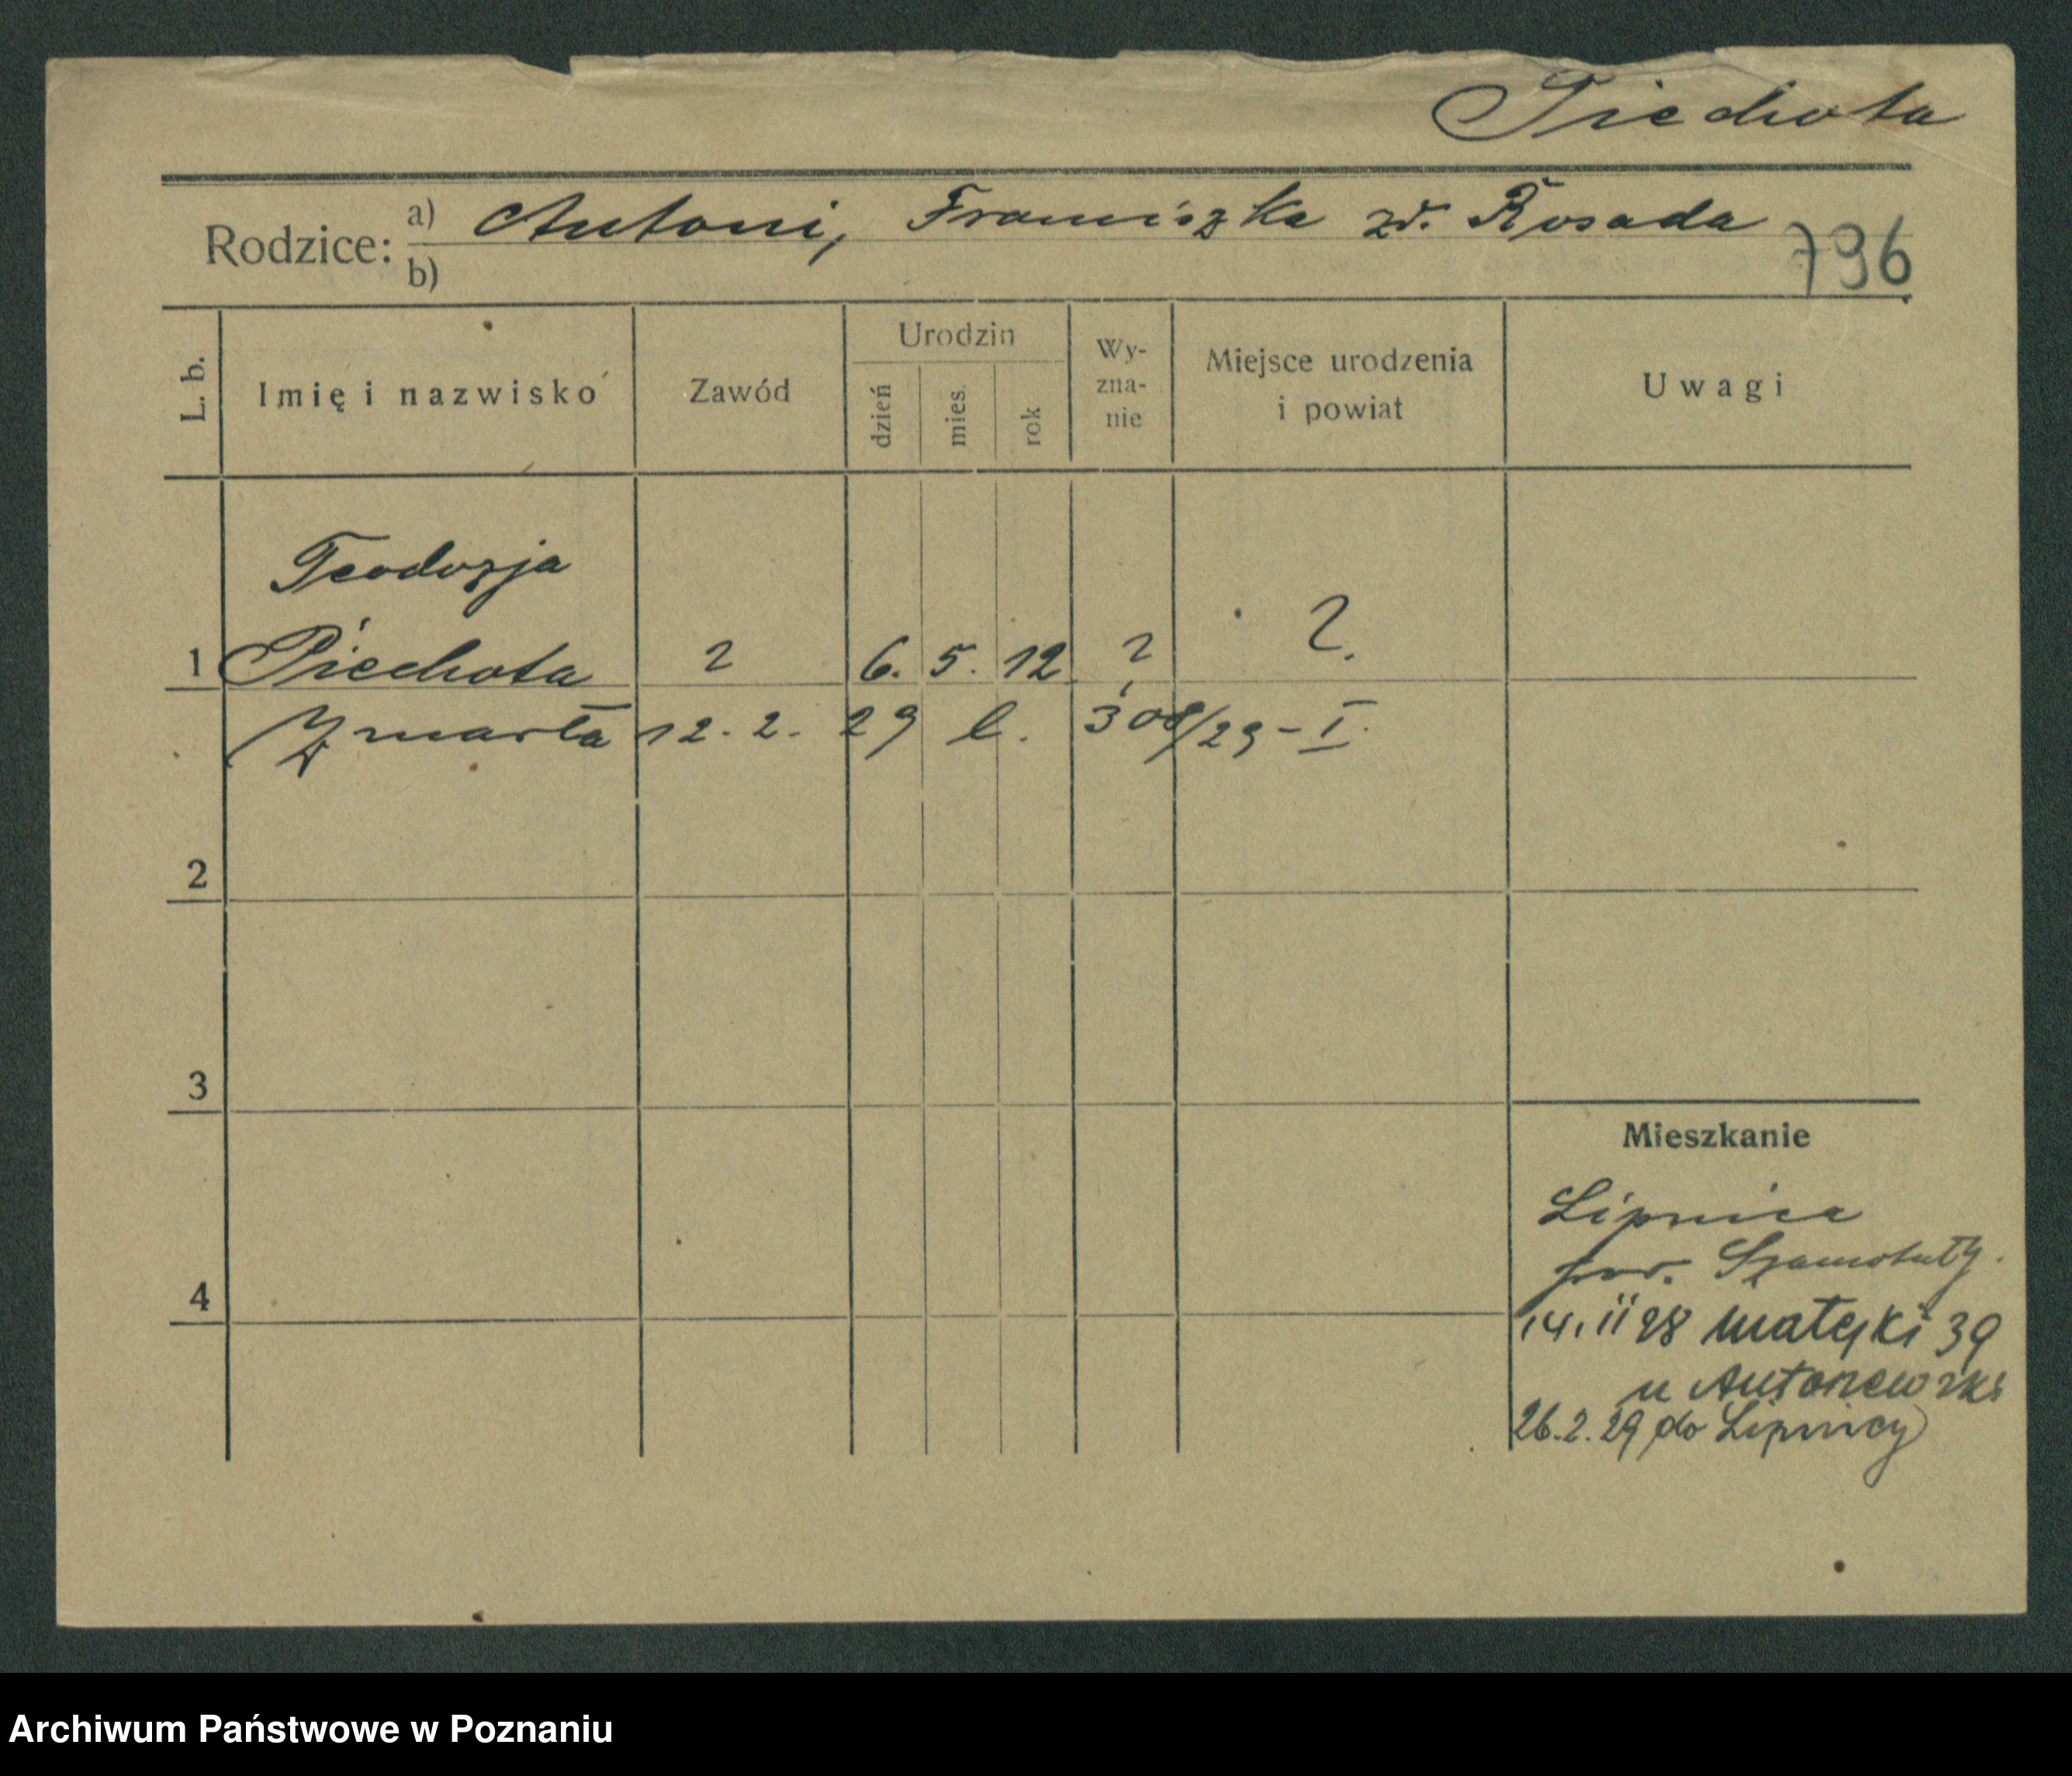 Piechota
Rodzice: a) Antoni, Franciszka zd. Rosada
b)
796
L. b.
Imię i nazwisko
Zawód
Urodzin
dzień
mies.
rok
Wy-
zna-
nie
Miejsce urodzenia
i powiat
Uwagi
Teodozja
1 Piechota ? 6. 5. 12 ? ?.
Zmarła 12. 2. 29 l. 308/29 - I.
2
3
4
Mieszkanie
Lipnica
pow. Szamotuły.
14. II 28 Matejki 39
u Antoniewski
26.2.29 do Lipnicy
Archiwum Państwowe w Poznaniu